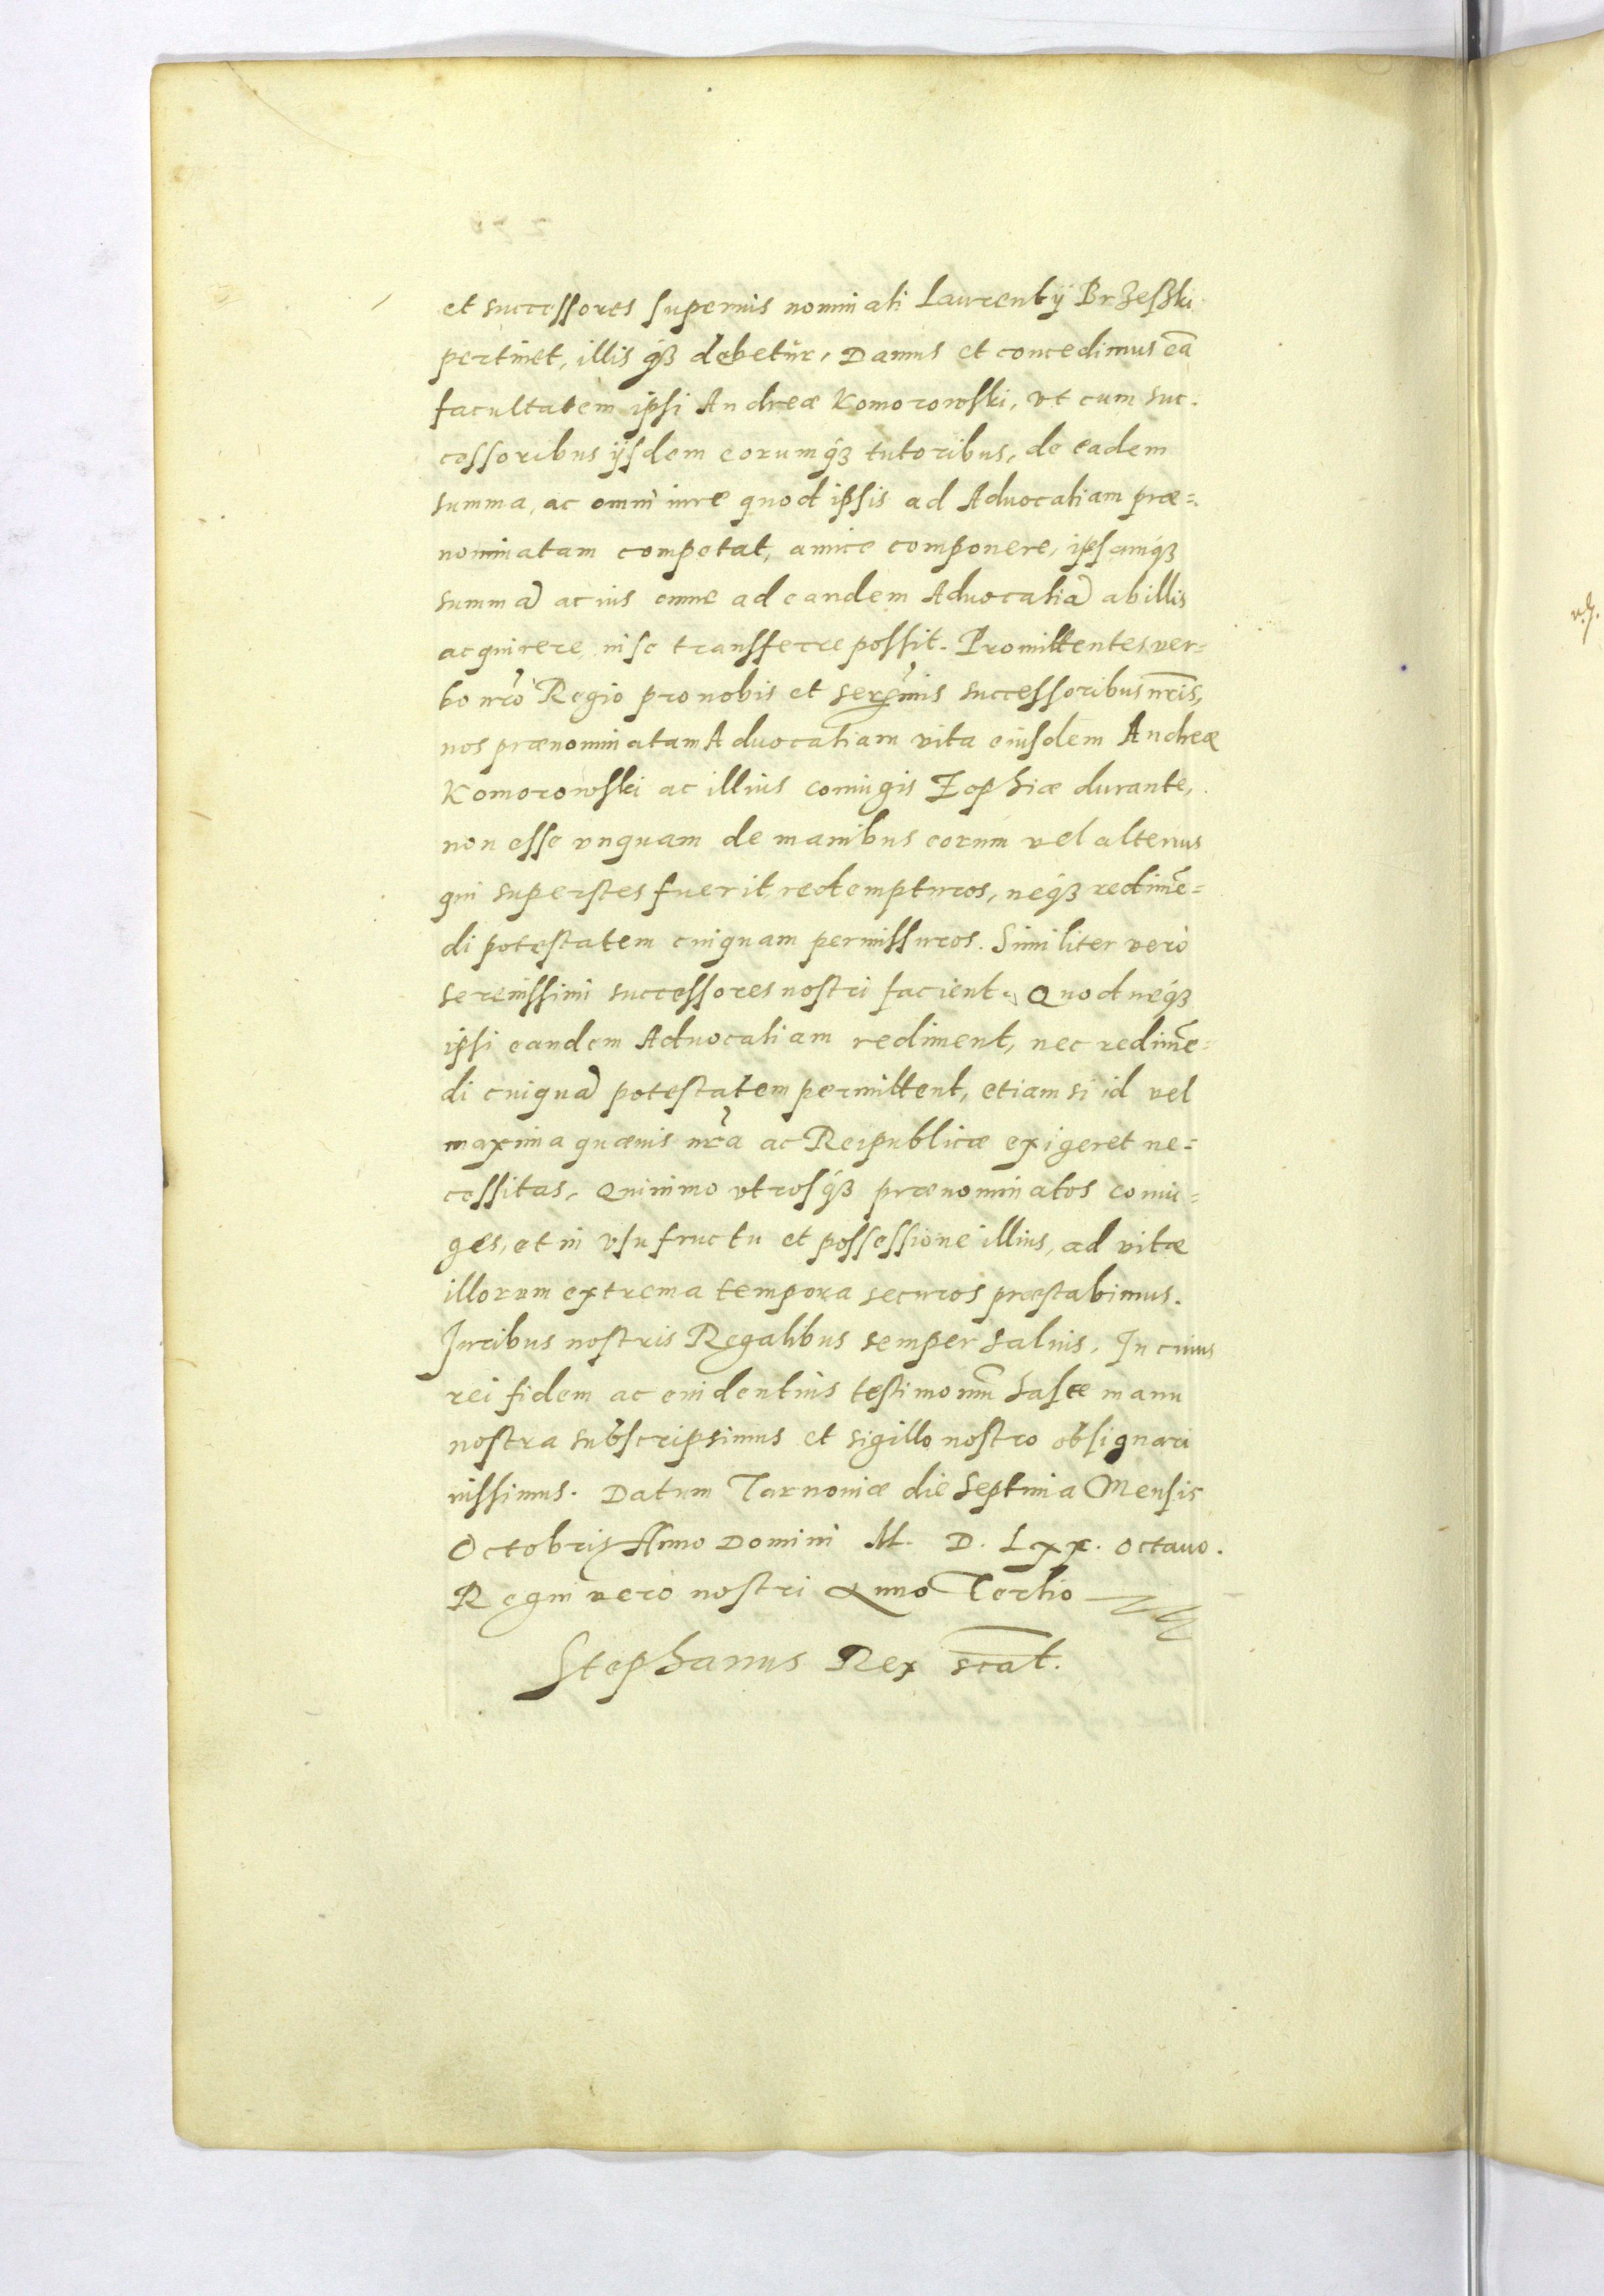 et successores superius nominati Laurentÿ Brzeßki
pertinet, illis q́ꝫ debetur, Damus et concedimus eā
facultatem ipsi Andreæ Komorowski, vt cum suc-
cessoribus ÿsdem eorumq́ꝫ tutoribus, de eadem
summa, ac omni iure quod ipsis ad Aduocatiam præ=
nominatam competat, amice componere, ipsamq́ꝫ
summā ac ius omne ad eandem Aduocatiā ab illis
acquirere, in se transferre possit. Promittentes ver=
bo nr̄o Regio pro nobis et serenīmis successoribus nr̄is,
nos prænominatam Aduocatiam vita eiusdem Andreæ
Komorowski ac illius coniugis Zophiæ durante,
non esse vnquam de manibus eorum vel alterius
qui superstes fuerit redempturos, neq́ꝫ redimē=
di potestatem cuiquam permissuros. Similiter vero
serenissimi successores nostri facient. Quod neq́ꝫ
ipsi eandem Aduocatiam rediment, nec redimē=
di cuiquā potestatem permittent, etiam si id vel
maxima quæuis nr̄a ac Reipublicæ exigeret ne=
cessitas, Quinimo vtrosq́ꝫ prænominatos coniu=
ges, et in vsufructu et possessione illius, ad vitæ
illorum extrema tempora securos præstabimus.
Juribus nostris Regalibus semper saluis. In cuius
rei fidem ac euidentius testimoniū hasce manu
nostra subscripsimus et sigillo nostro obsignari
iussimus. Datum Tarnouiæ die septima Mensis
Octobris Anno Domini M. D. Lxx. octauo.
Regni vero nostri Anno Tertio
Stephanus Rex sc̄at.